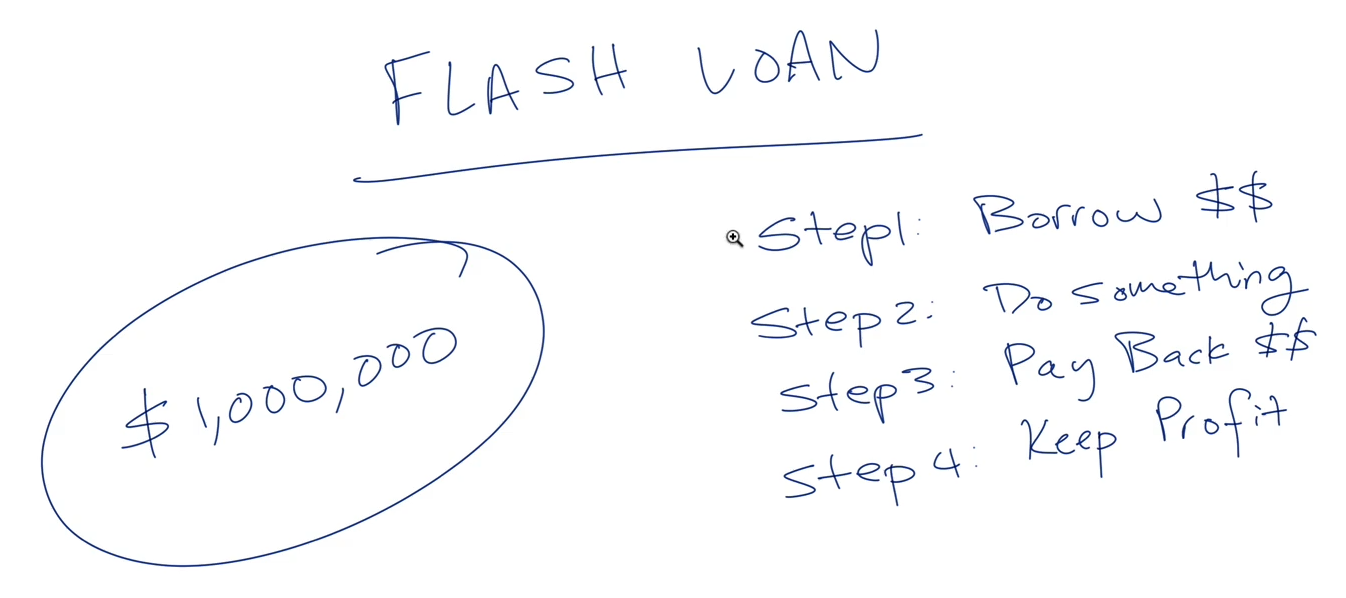 FLASH LOAN
$1,000,000
Step1: Borrow $$
Step2: Do something
Step3: Pay Back $$
Step4: Keep Profit